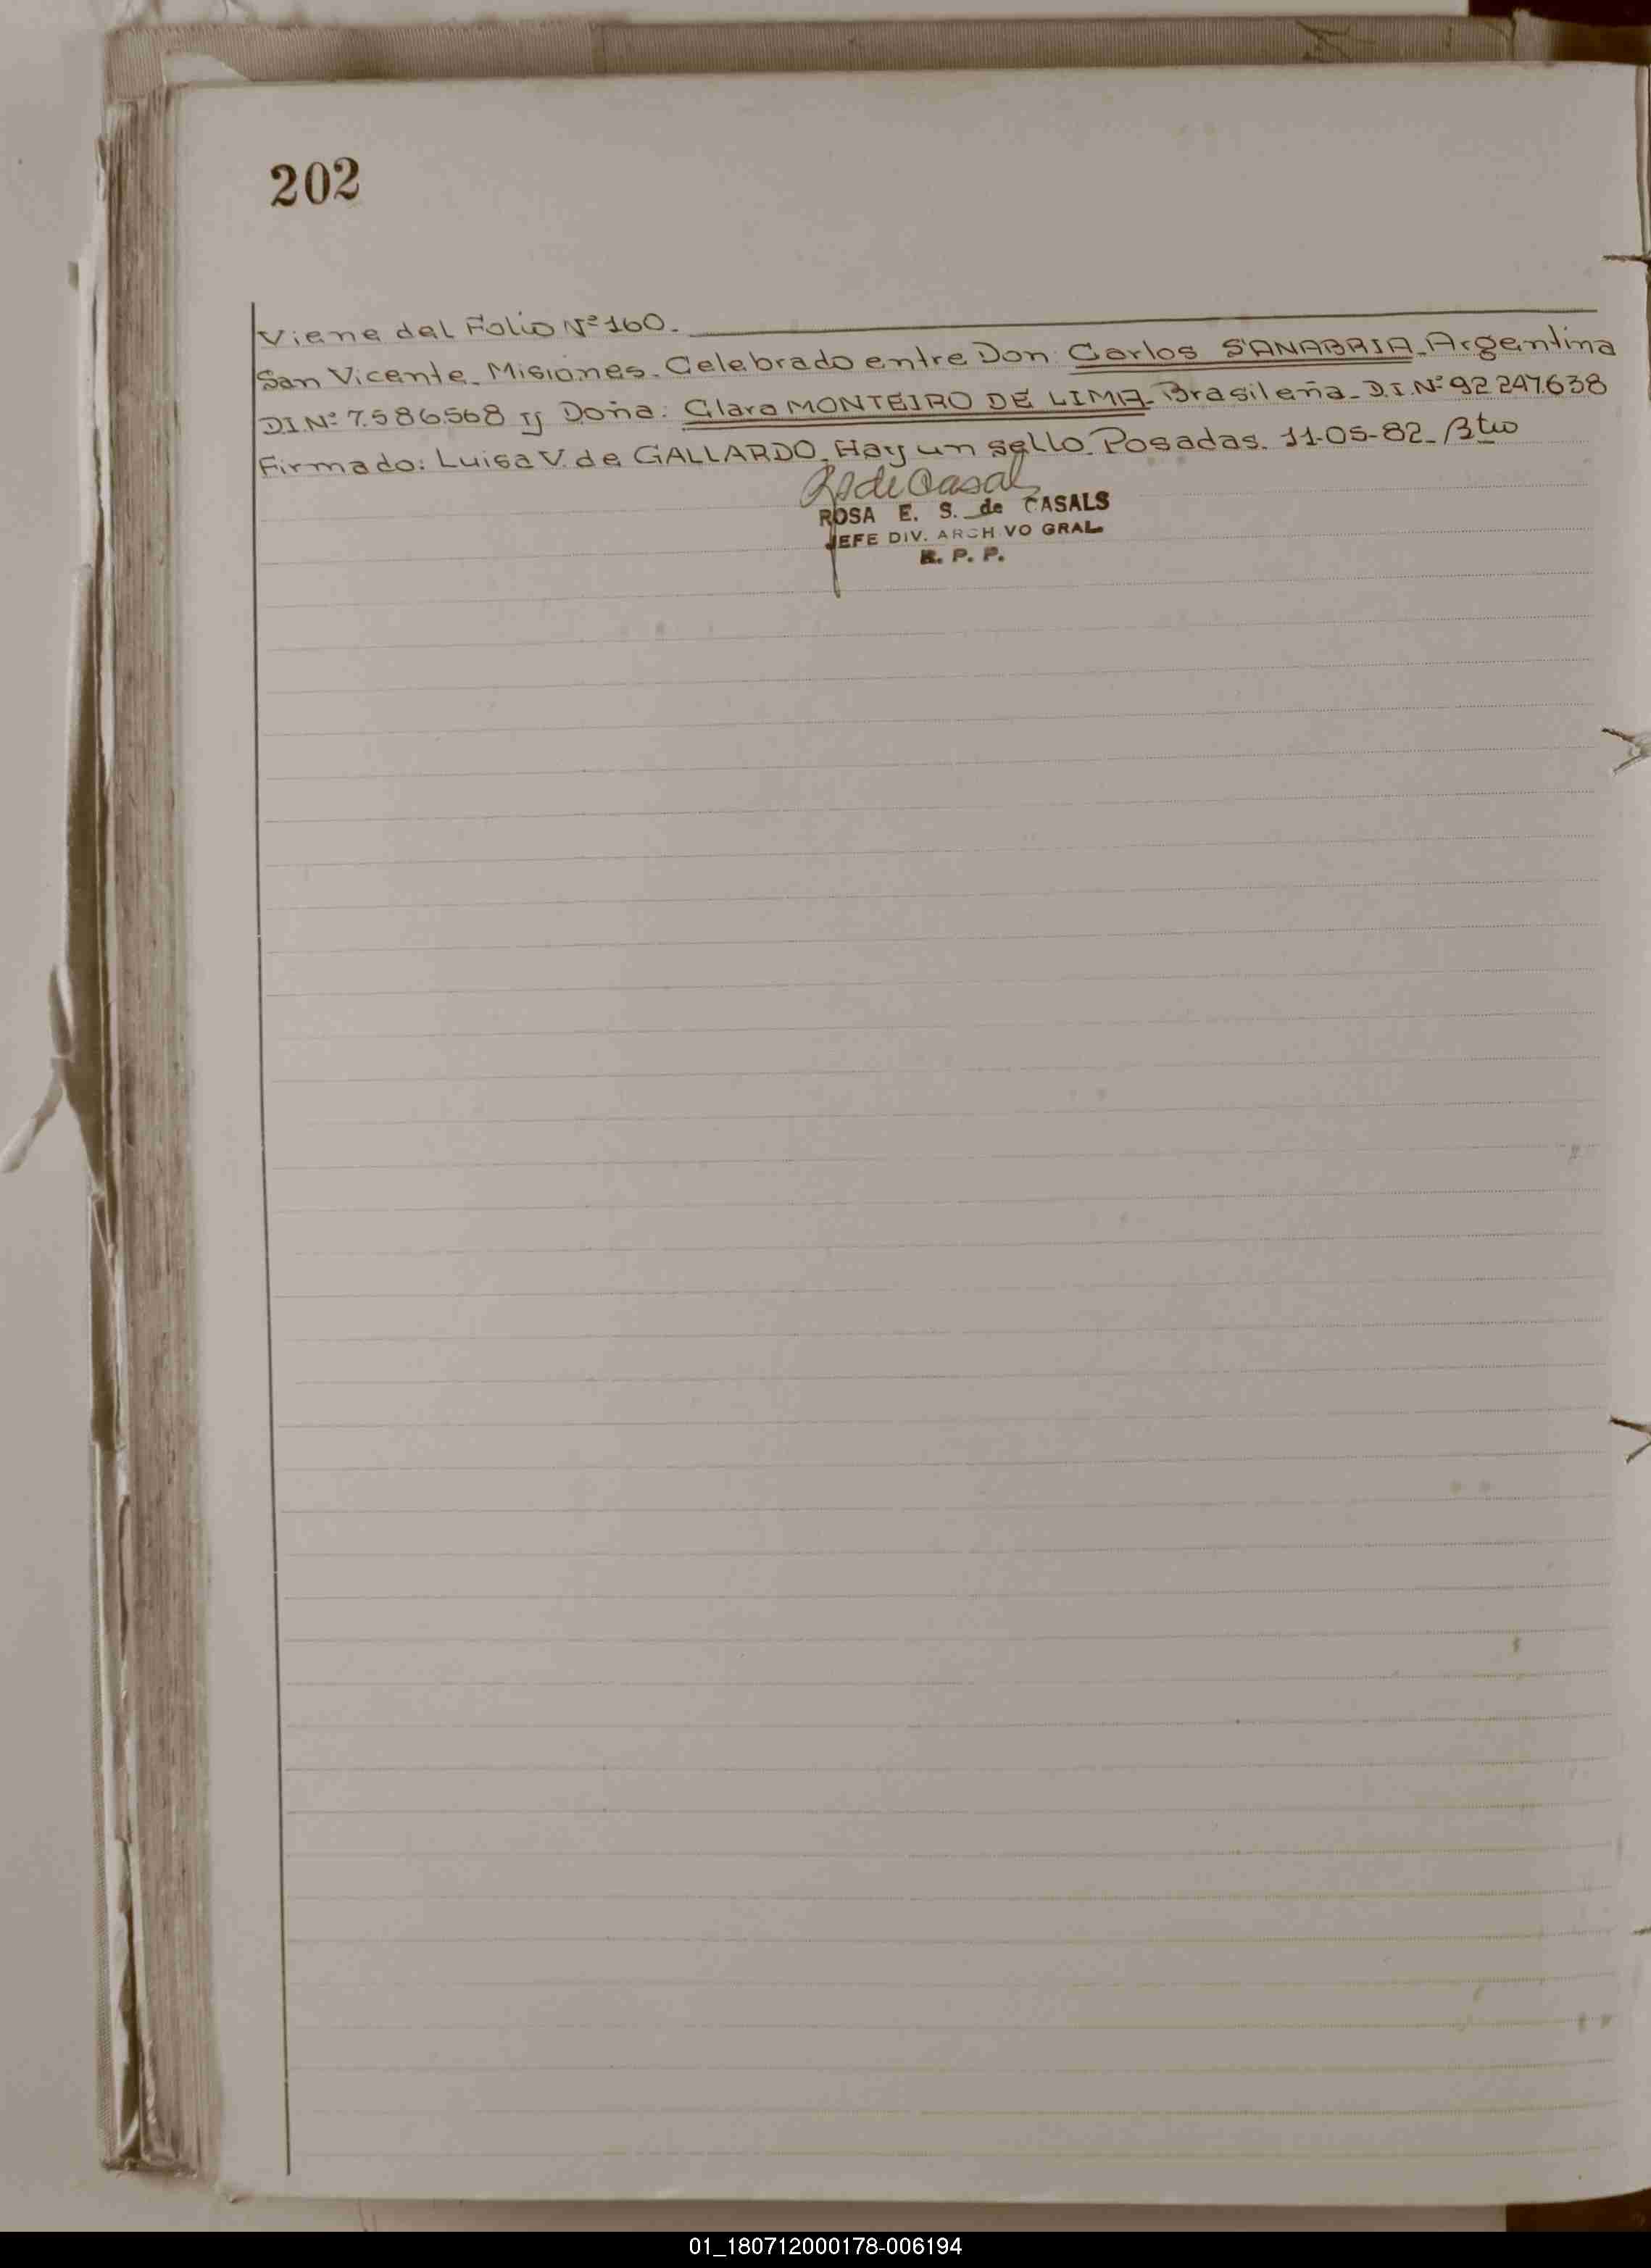 202
Viene del Folio Nº 160.
San Vicente. Misiones. Celebrado entre Don: Carlos SANABRIA. Argentina
D.I.Nº 7.586.568 y Doña: Clara MONTEIRO DE LIMA. Brasileña. D.I.Nº 92 247.638
Firmado: Luisa V. de GALLARDO. Hay un sello. Posadas. 11-05-82.
ROSA E. S. de CASALS
JEFE DIV. ARCH VO GRAL.
R. P. P.
01_180712000178-006194